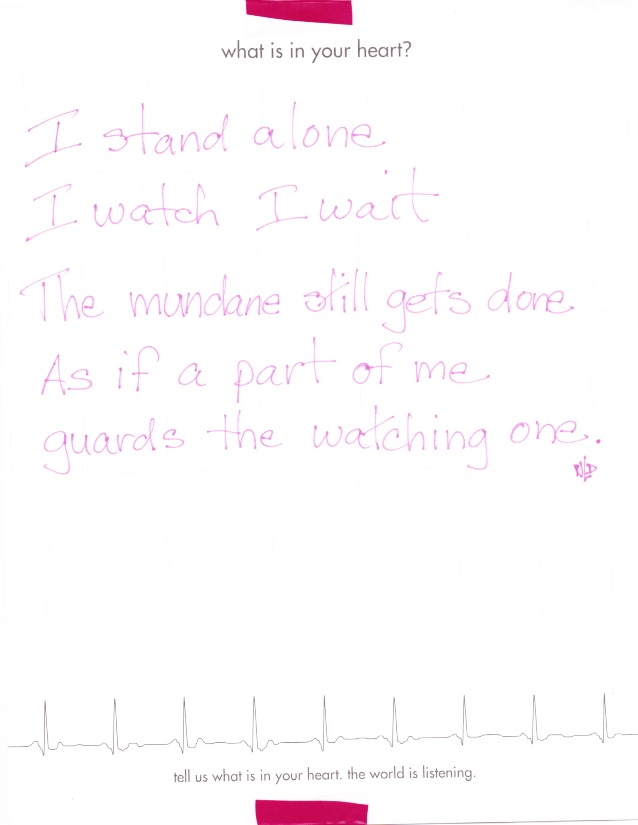 what is in your heart?
I stand alone
I watch I wait
The mundane still gets done
As if a part of me
guards the watching one.
tell us what is in your heart. the world is listening.